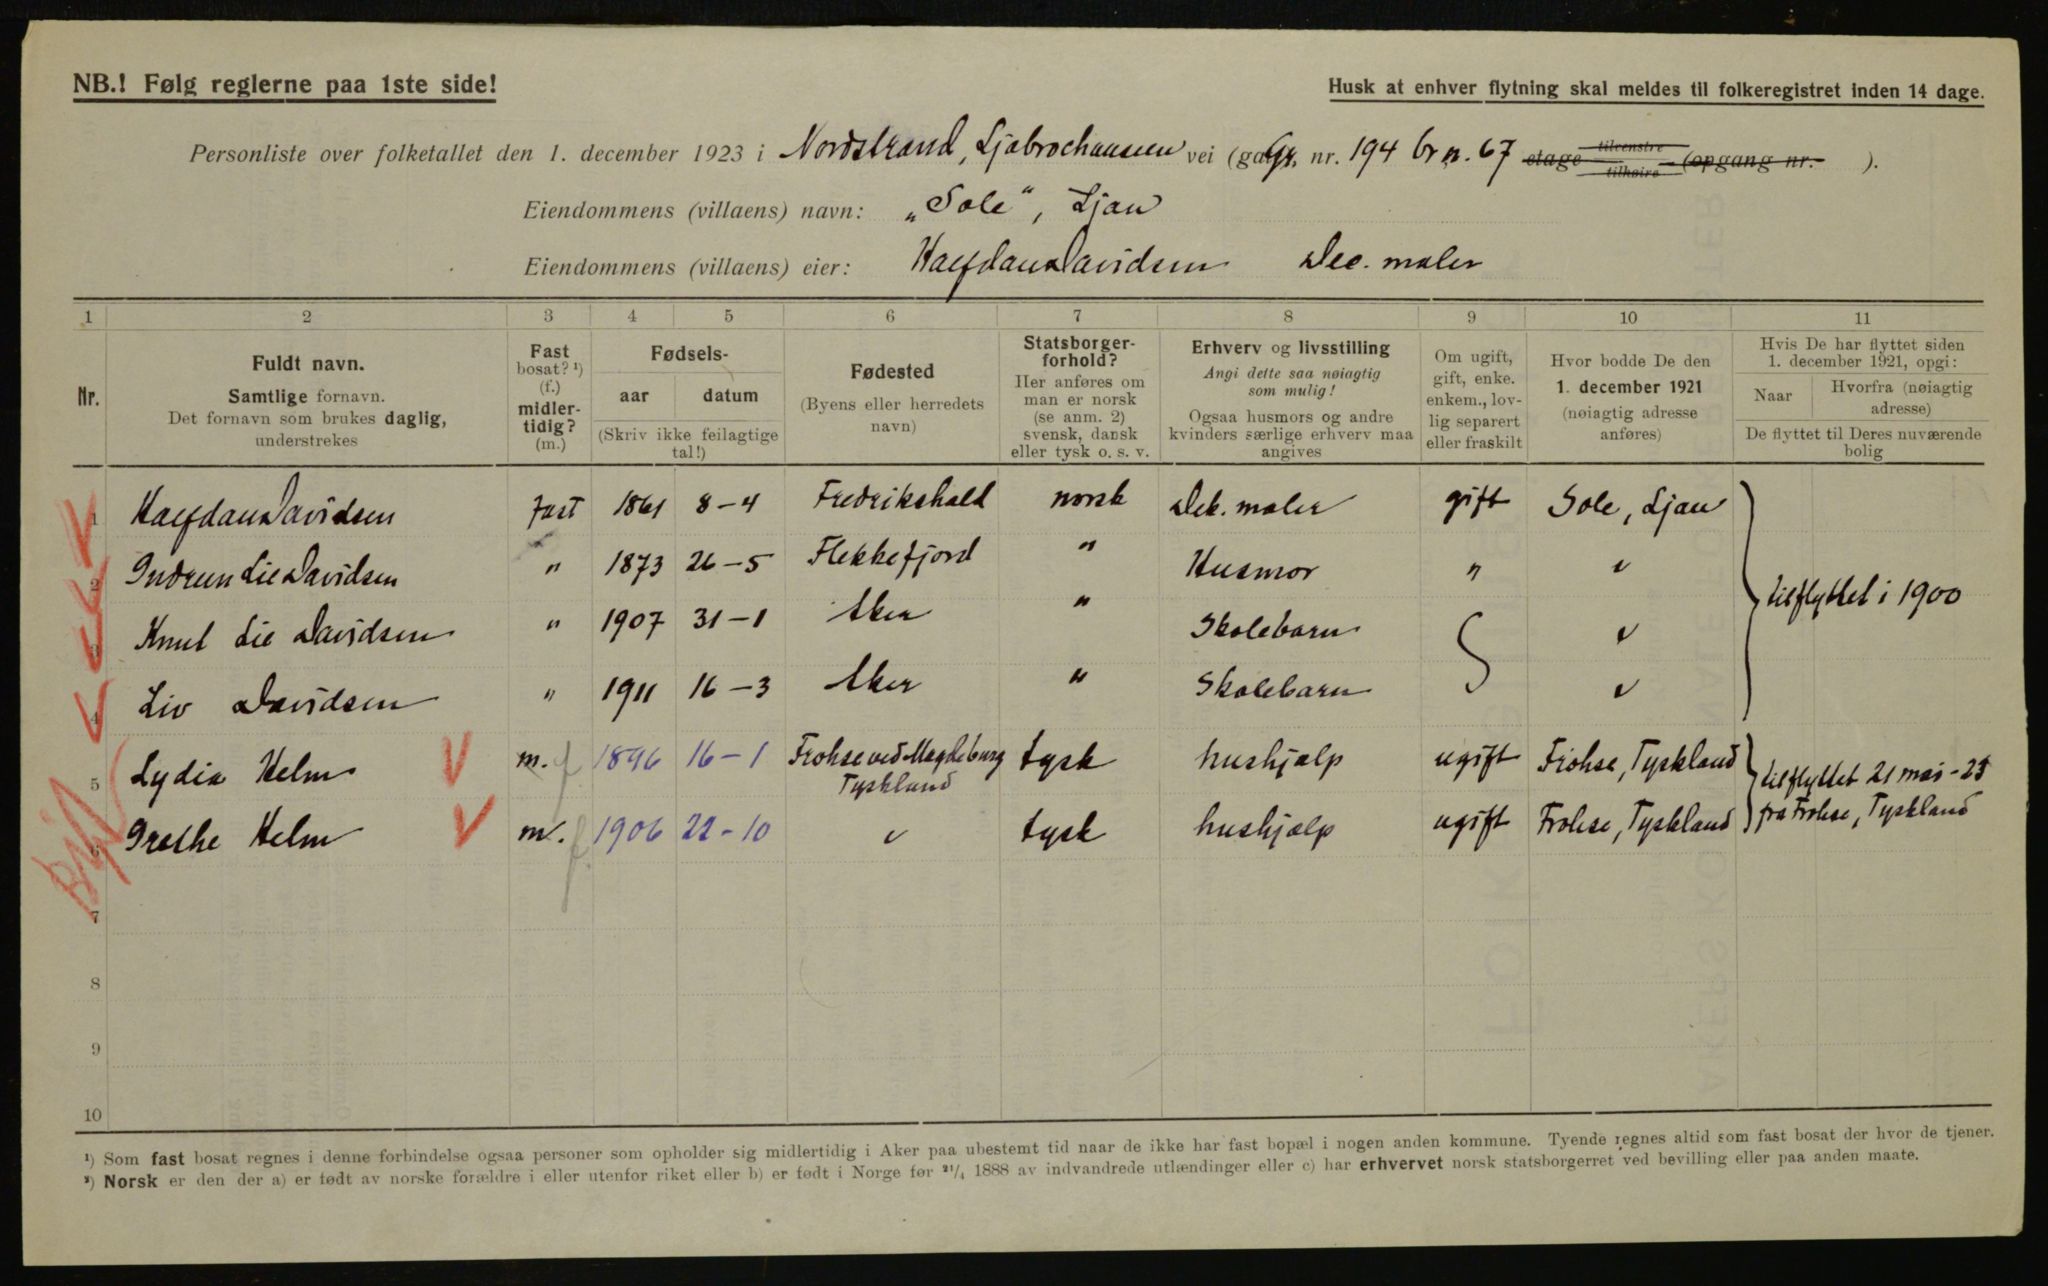 NB.! Følg reglerne paa 1ste side!
Husk at enhver flytning skal meldes til folkeregistret inden 14 dage.
Personliste over folketallet den 1. december 1923 i Nordstrand, Ljabrochauseen vei (ga Gr. nr. 194 br n. 67 etage tilvenstre tilhøire (opgang nr. ).
Eiendommens (villaens) navn: „Sole“, Ljan
Eiendommens (villaens) eier: Halfdan Davidsen Dec. maler
1 2 3 4 5 6 7 8 9 10 11
Nr.
Fuldt navn.
Samtlige fornavn.
Det fornavn som brukes daglig,
understrekes
Fast
bosat? ¹)
(f.)
midler-
tidig?
(m.)
Fødsels-
aar datum
(Skriv ikke feilagtige
tal!)
Fødested
(Byens eller herredets
navn)
Statsborger-
forhold?
Her anføres om
man er norsk
(se anm. 2)
svensk, dansk
eller tysk o. s. v.
Erhverv og livsstilling
Angi dette saa nøiagtig
som mulig!
Ogsaa husmors og andre
kvinders særlige erhverv maa
angives
Om ugift,
gift, enke.
enkem., lov-
lig separert
eller fraskilt
Hvor bodde De den
1. december 1921
(nøiagtig adresse
anføres)
Hvis De har flyttet siden
1. december 1921, opgi:
Naar Hvorfra (nøiagtig
adresse)
De flyttet til Deres nuværende
bolig
1 Halfdan Davidsen fast 1861 8-4 Fredrikshald norsk Dek. maler gift Sole, Ljan
2 Gudrun Lie Davidsen " 1873 26-5 Flekkefjord " Husmor " "
tilflyttet i 1900
3 Knut Lie Davidsen " 1907 31-1 Aker " Skolebarn "
4 Liv Davidsen " 1911 16-3 Aker " Skolebarn "
5 Lydia Helm m. f 1896 16-1 Frohse ved Magdeburg tysk hushjælp ugift Frohse, Tyskland tilflyttet 21 mai - 23
Tyskland
6 Grethe Helm m. f. 1906 22-10 " tysk hushjælp ugift Frohse, Tyskland fra Frohse, Tyskland
7
8
9
10
¹) Som fast bosat regnes i denne forbindelse ogsaa personer som opholder sig midlertidig i Aker paa ubestemt tid naar de ikke har fast bopæl i nogen anden kommune. Tyende regnes altid som fast bosat der hvor de tjener.
²) Norsk er den der a) er født av norske forældre i eller utenfor riket eller b) er født i Norge før ²¹/₄ 1888 av indvandrede utlændinger eller c) har erhvervet norsk statsborgerret ved bevilling eller paa anden maate.